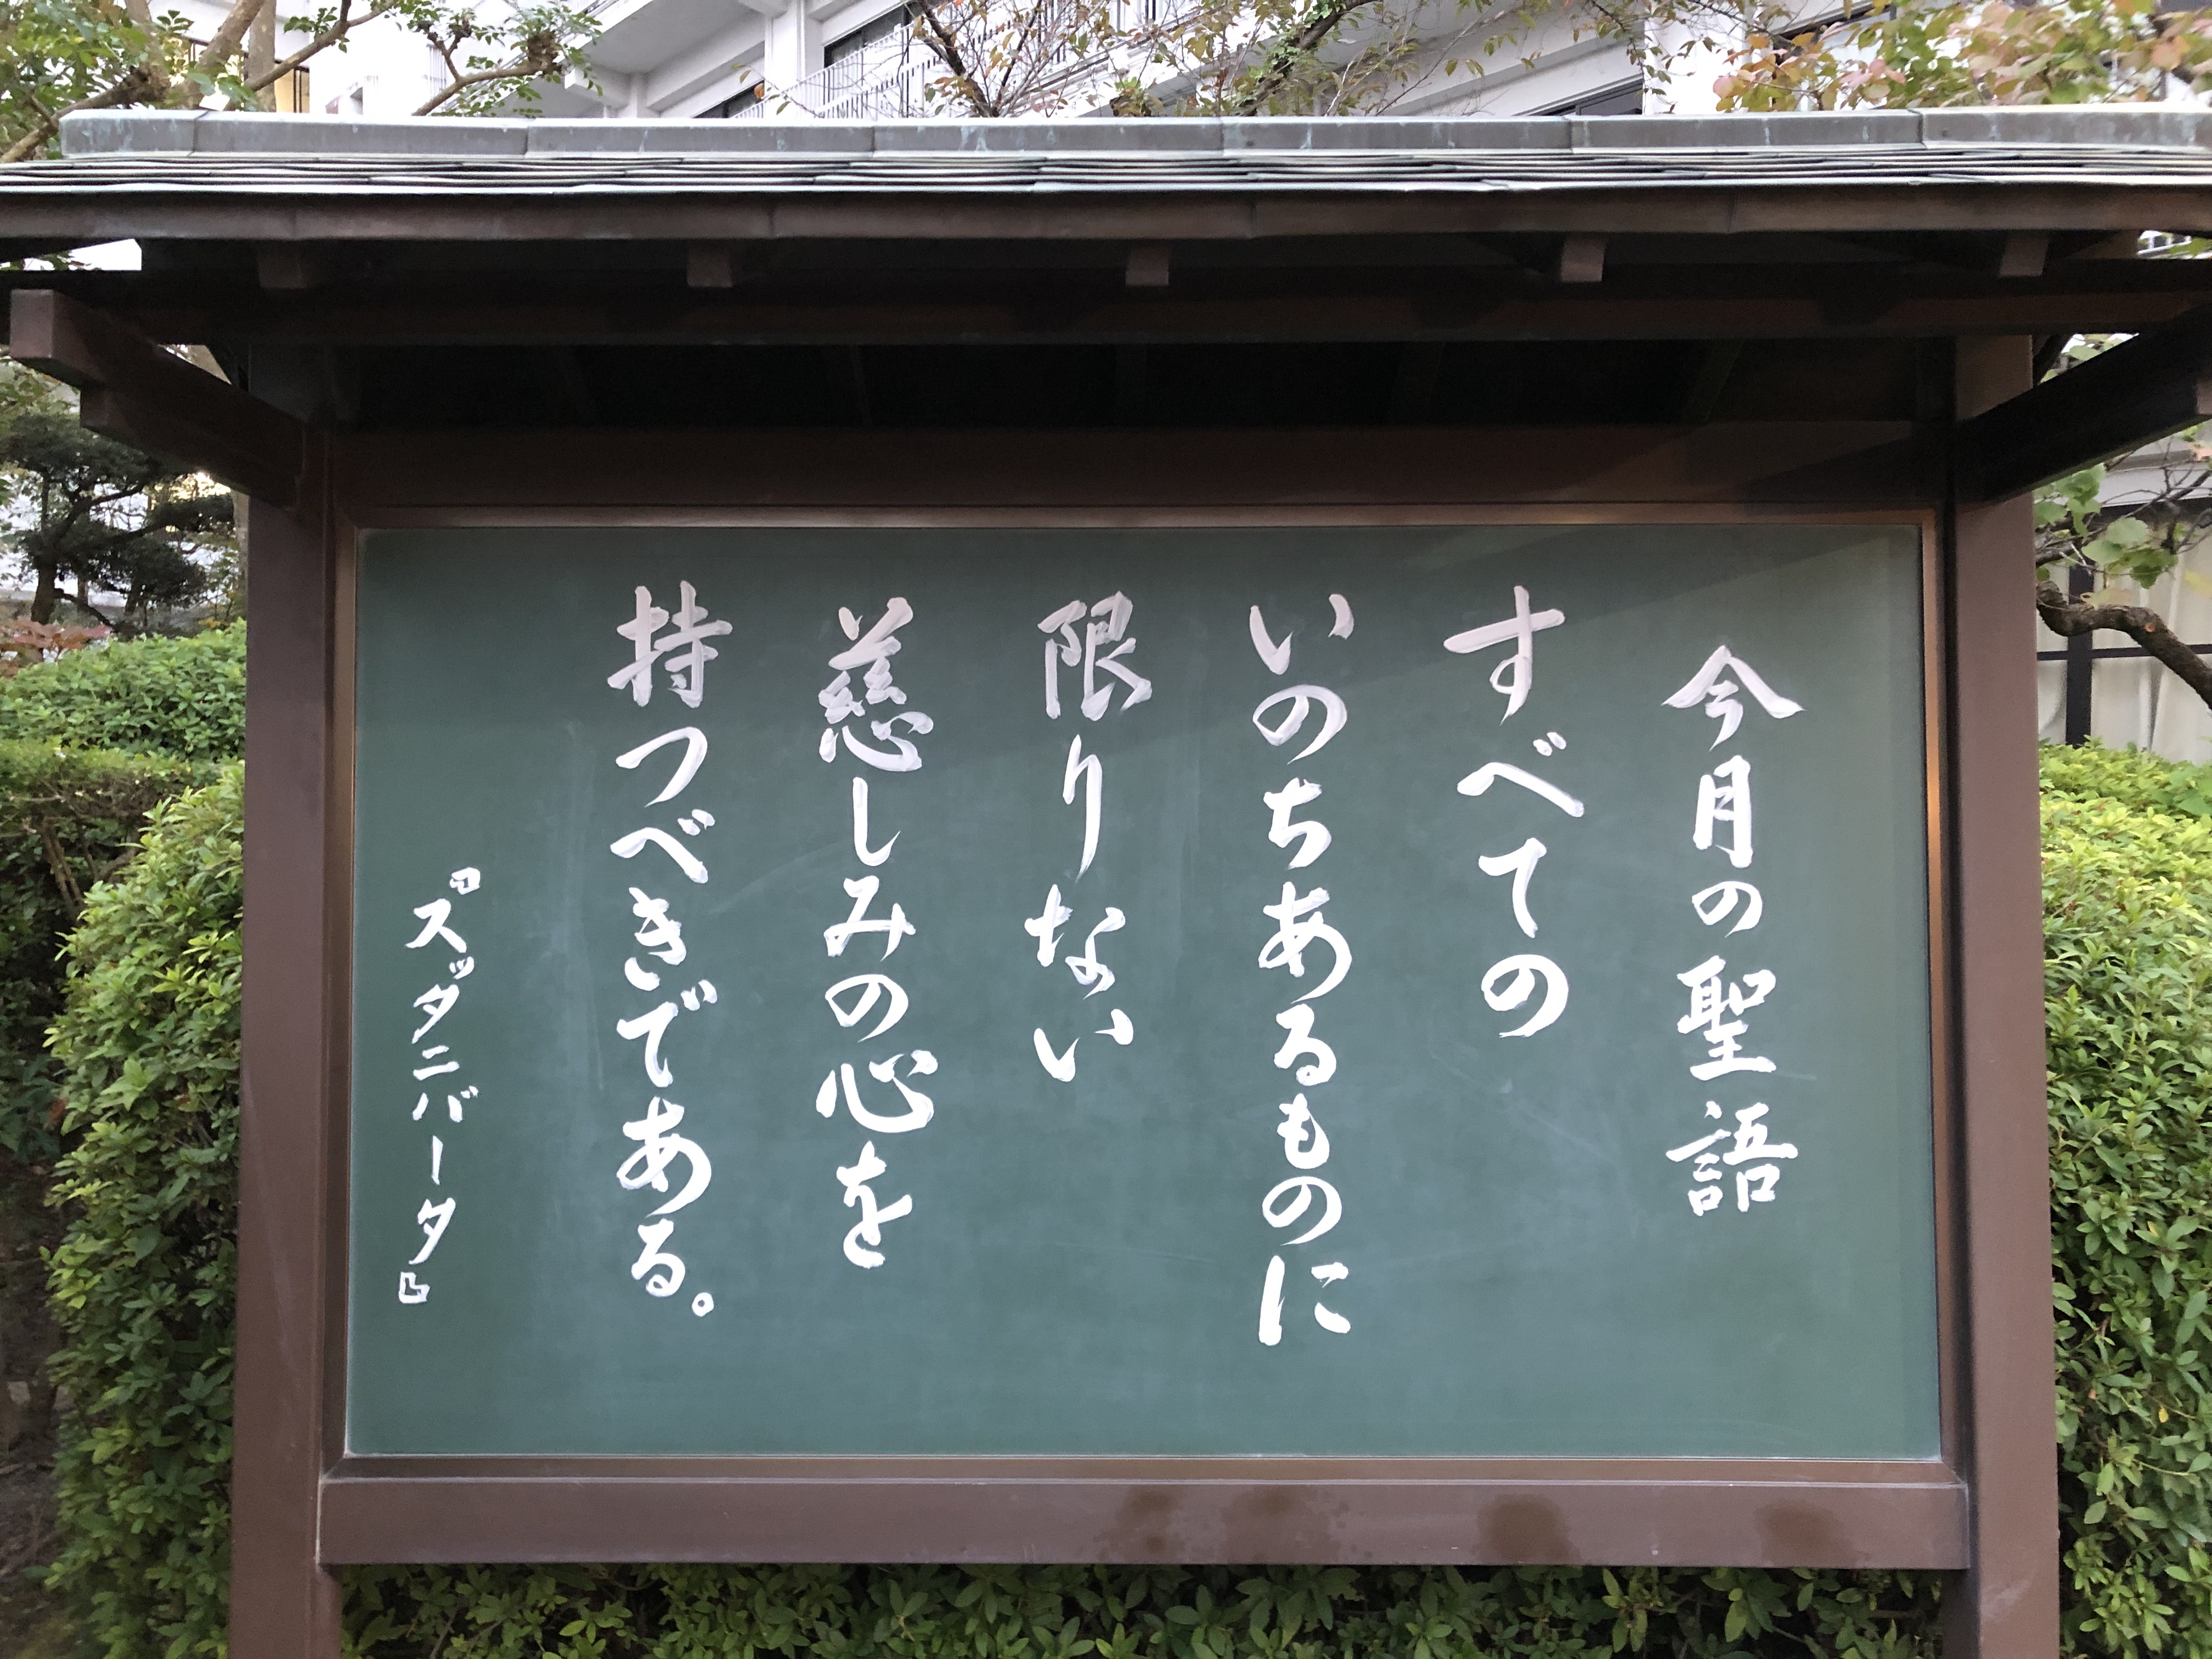 今月の聖語
すべての
いのちあるものに
限りない
慈しみの心を
持つべきである。
『スッタニバータ』